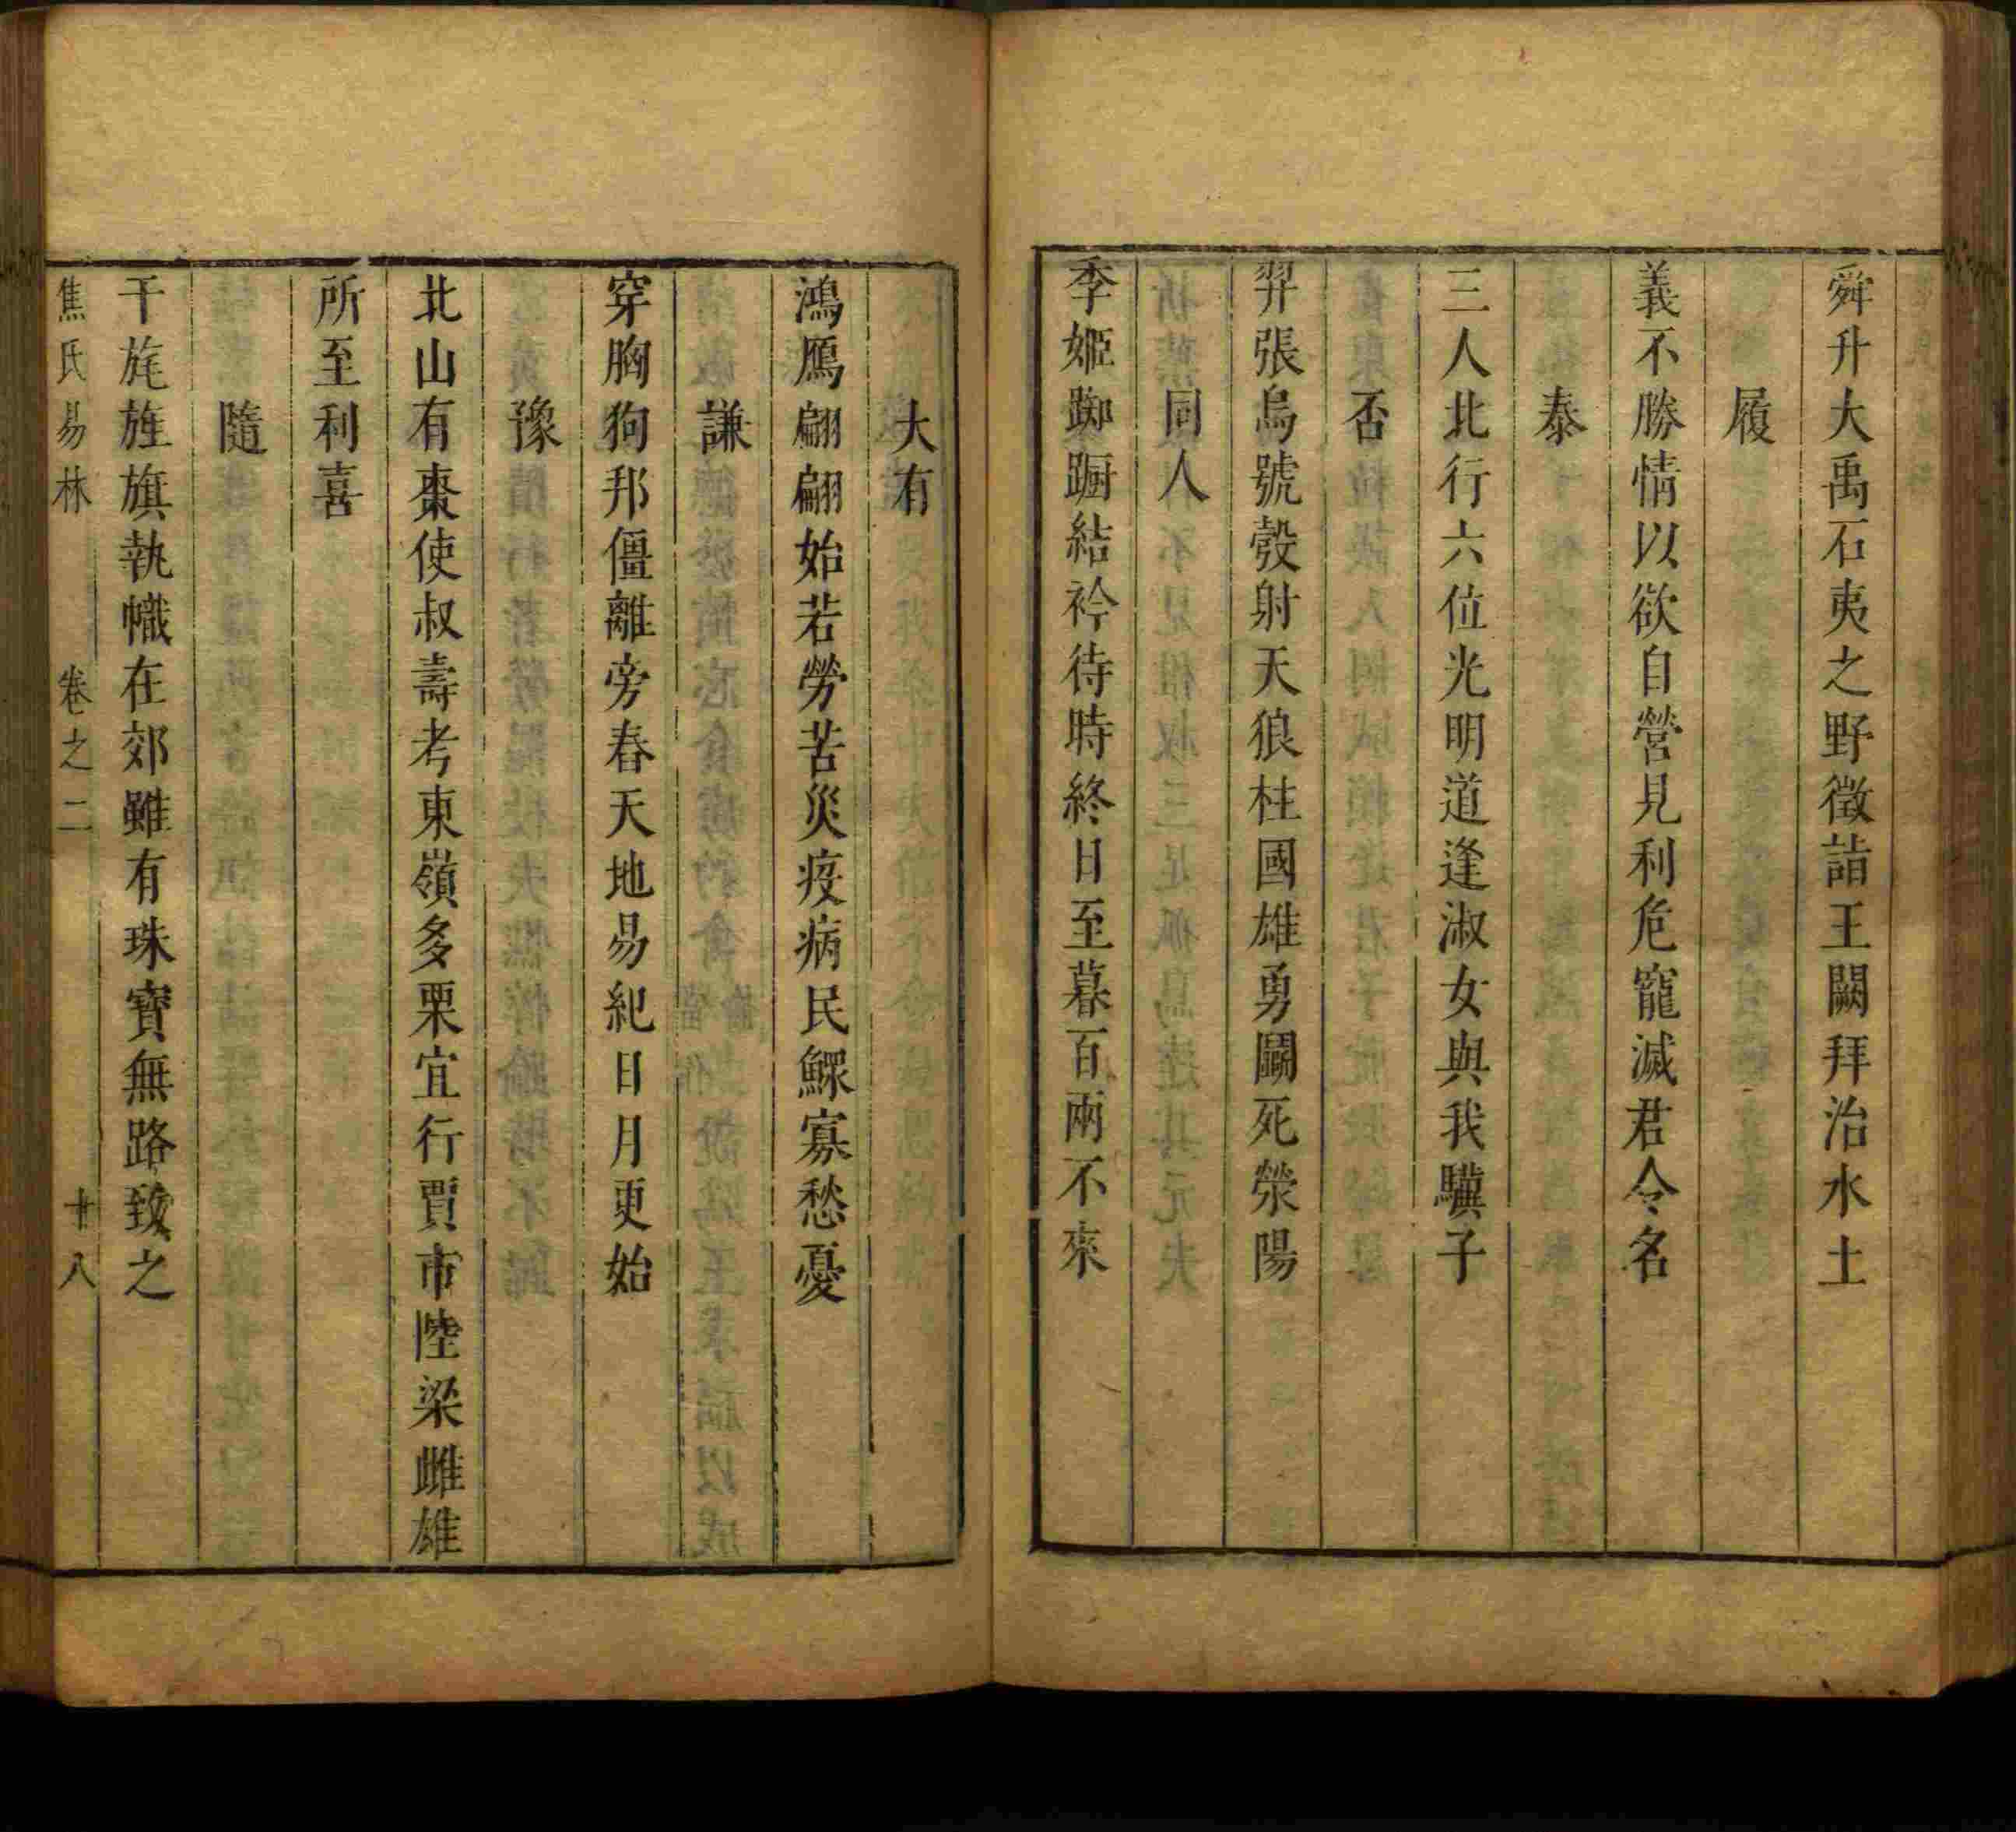 舜升大禹石夷之野徵詣王闕拜治水土
履
義不勝情以欲自營見利危寵滅君令名
泰
三人北行六位光明道逢淑女與我驥子
否
羿張烏號彀射天狼柱國雄勇鬭死滎陽
同人
季姬踟蹰結衿待時終日至暮百兩不來
大有
鴻鴈翩翩始若勞苦災疫病民鰥寡愁憂
謙
穿胸狗邦僵離旁春天地易紀日月更始
豫
北山有棗使叔壽考東嶺多栗宜行賈市陸梁雌雄
所至利喜
隨
干旄旌旗執幟在郊雖有珠寶無路致之
焦氏易林 卷之二 十八